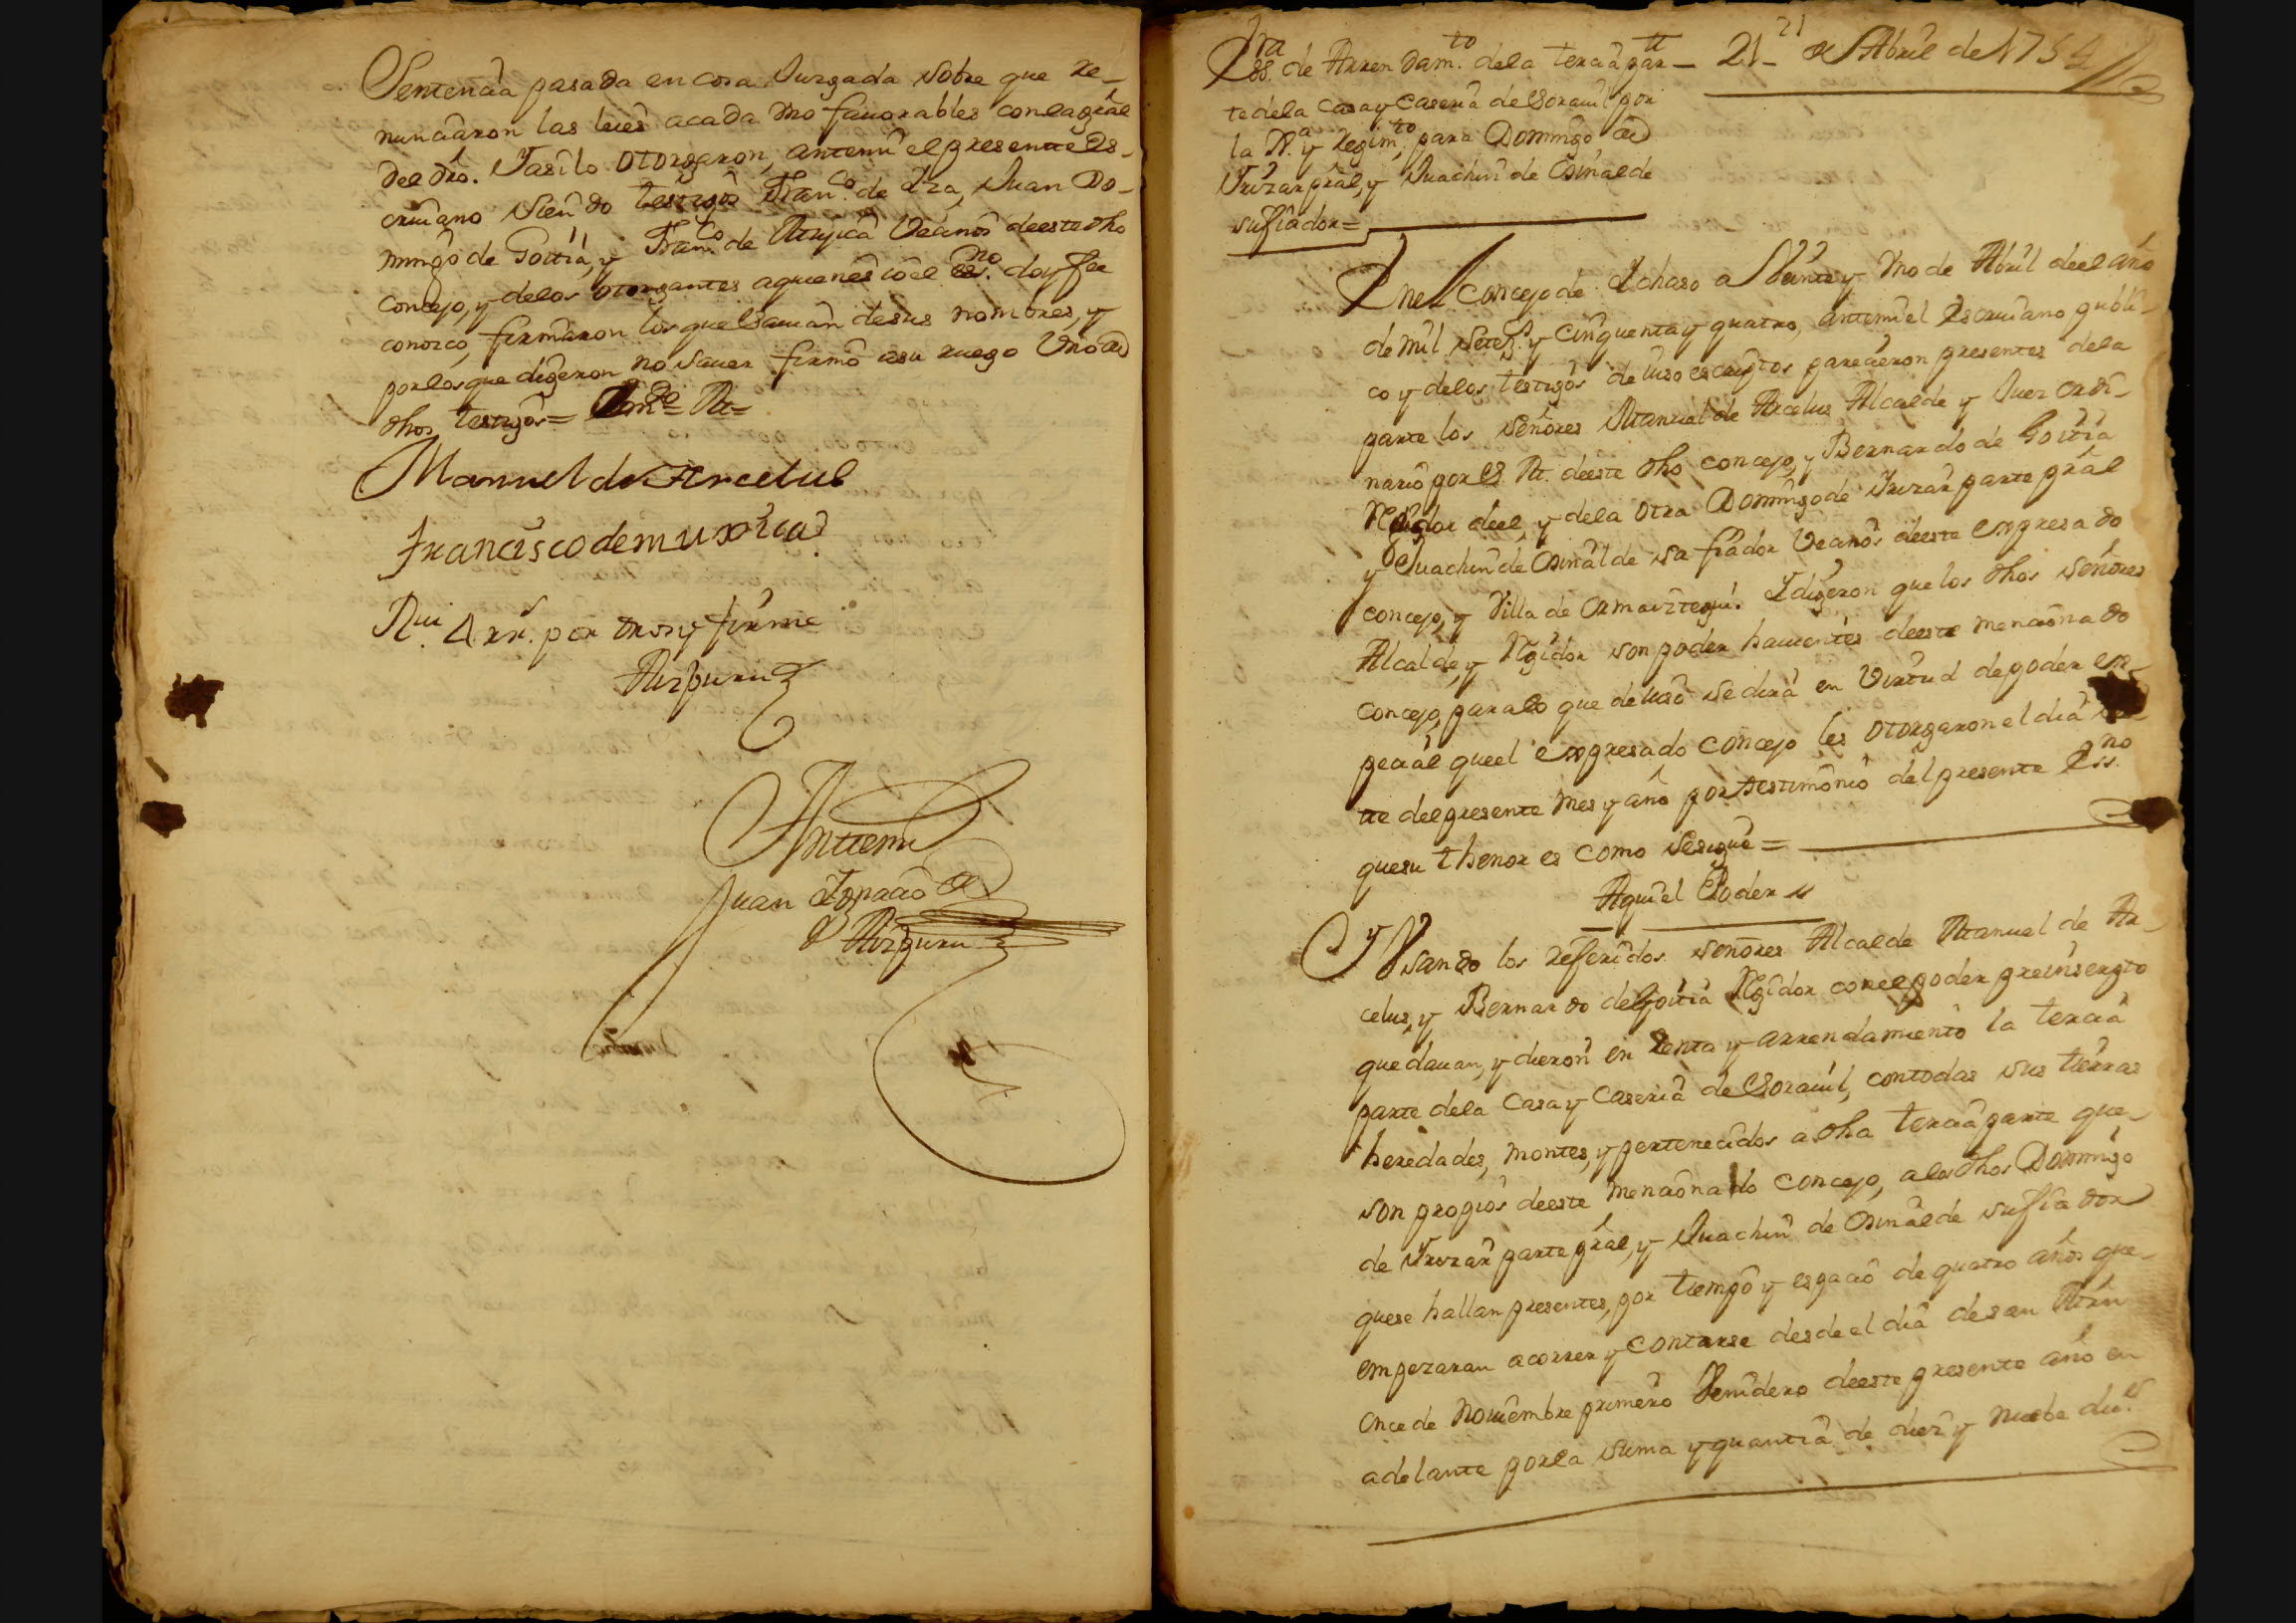 Sentencia pasada en cosa Jurgada sobre que re-
nunciaron las leies acada vno fauorables conlagrâl
del dro. Yasilo otorgaron, antemi el presente es-
criuano siendo testigos Fran.co de Aza, Juan Do-
mingo de Goitia, y Fran.co de Muxica Vecinos deeste dho
concejo, y delos otorgantes aquienes io el ess.no doy fee
conozco, firmaron los que sauian desus nombres, y
porlos que digeron no sauer firmô asu ruego Vno de
dhos testigos=
Manuel de Arcelus
Francisco de muxica
por tres y firme
Aizpuru
Anttemi
Juan Ignacio de
Aizpuru
21 de Abril de 1754
Ess.ra de Arrendam.to dela tercia par-
te dela casa y caseria de Soraiil por
la N.a y regim.to, para Domingo de
Yrizar prâl, y Juachin de Osinalde
su fiador=
Enel concejo de Ichaso a Veinte y vno de Abril deel año
de mil setez.s y cinquenta y quatro, antemi el Escriuano publi-
co y delos testigos de iuso escriptos parecieron presentes dela
parte los señores Manuel de Arcelus Alcalde y Juez ordi-
nario por S. M. deeste dho concejo, y Bernardo de Goitia
Regidor deel, y dela otra Domingo de Yrizar parte prâl
y Juachin de Osinalde su fiador Vecinos deeste expresado
concejo, y Villa de Ormaiztegui. Y digeron que los dhos señores
Alcalde, y Regidor son poder hauientes deeste mencionado
concejo, paralo que de iuso se dirâ en Virtud de poder es-
pecial queel expresado concejo les otorgaron el dia
te del presente mes y año por testimonio del presente Ess.no
quesu thenor es como sesigue=
Aqui el Poder
Y Vsando los referidos señores Alcalde Manuel de Ar-
celus, y Bernardo de Goitia Regidor conel poder preinserpto
que dauan, y dieron en Renta y arrendamiento la tercia
parte dela casa y caseria de Soraiil, contodas sus tierras
heredades, montes, y pertenecidos a dha tercia parte que
son propios deeste mencionado concejo, alos dhos Domingo
de Yrizar parte prâl, y Juachin de Osinalde su fiador
quese hallan presentes, por tiempo y espacio de quatro años que
empezaran acorrer y contarse desde el dia de san Mrin
once de Nouiembre primero Venidero deeste presente año en
adelante porla suma y quantia de diez y nuebe du.s